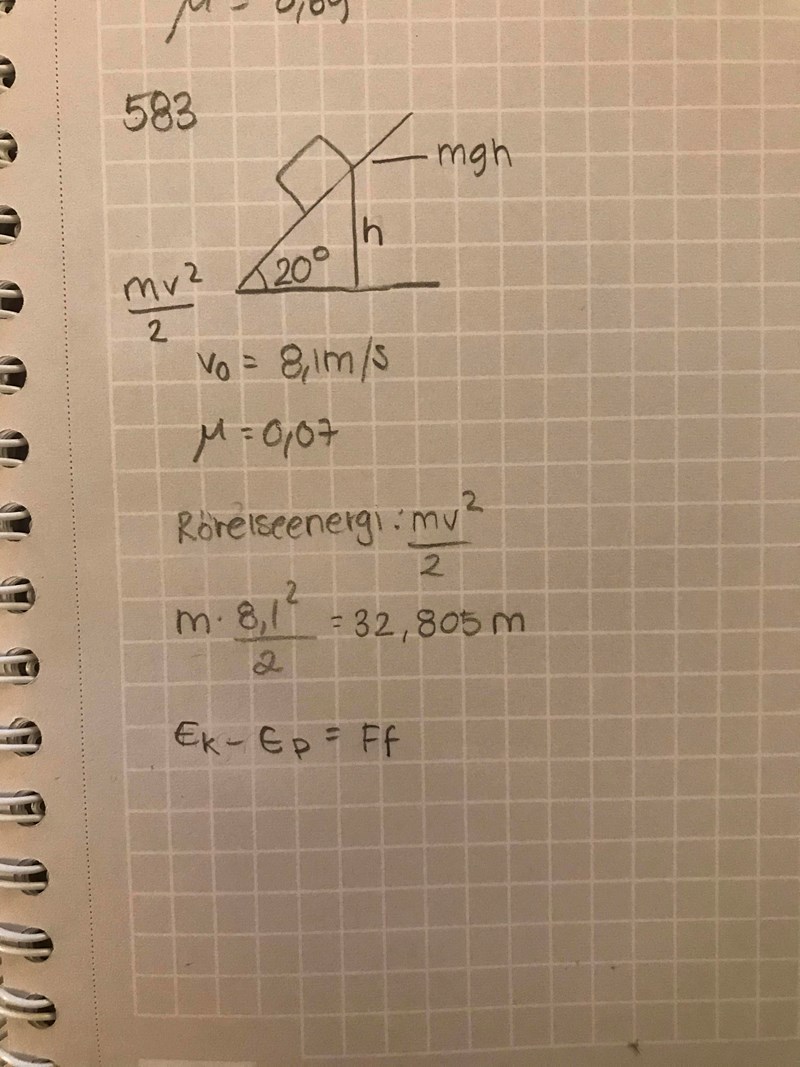 μ = 0,09
583
mgh
h
20°
mv²
2
v₀ = 8,1m/s
μ = 0,07
Rörelseenergi: mv²
2
m · 8,1² = 32,805 m
2
Eₖ - Eₚ = Ff